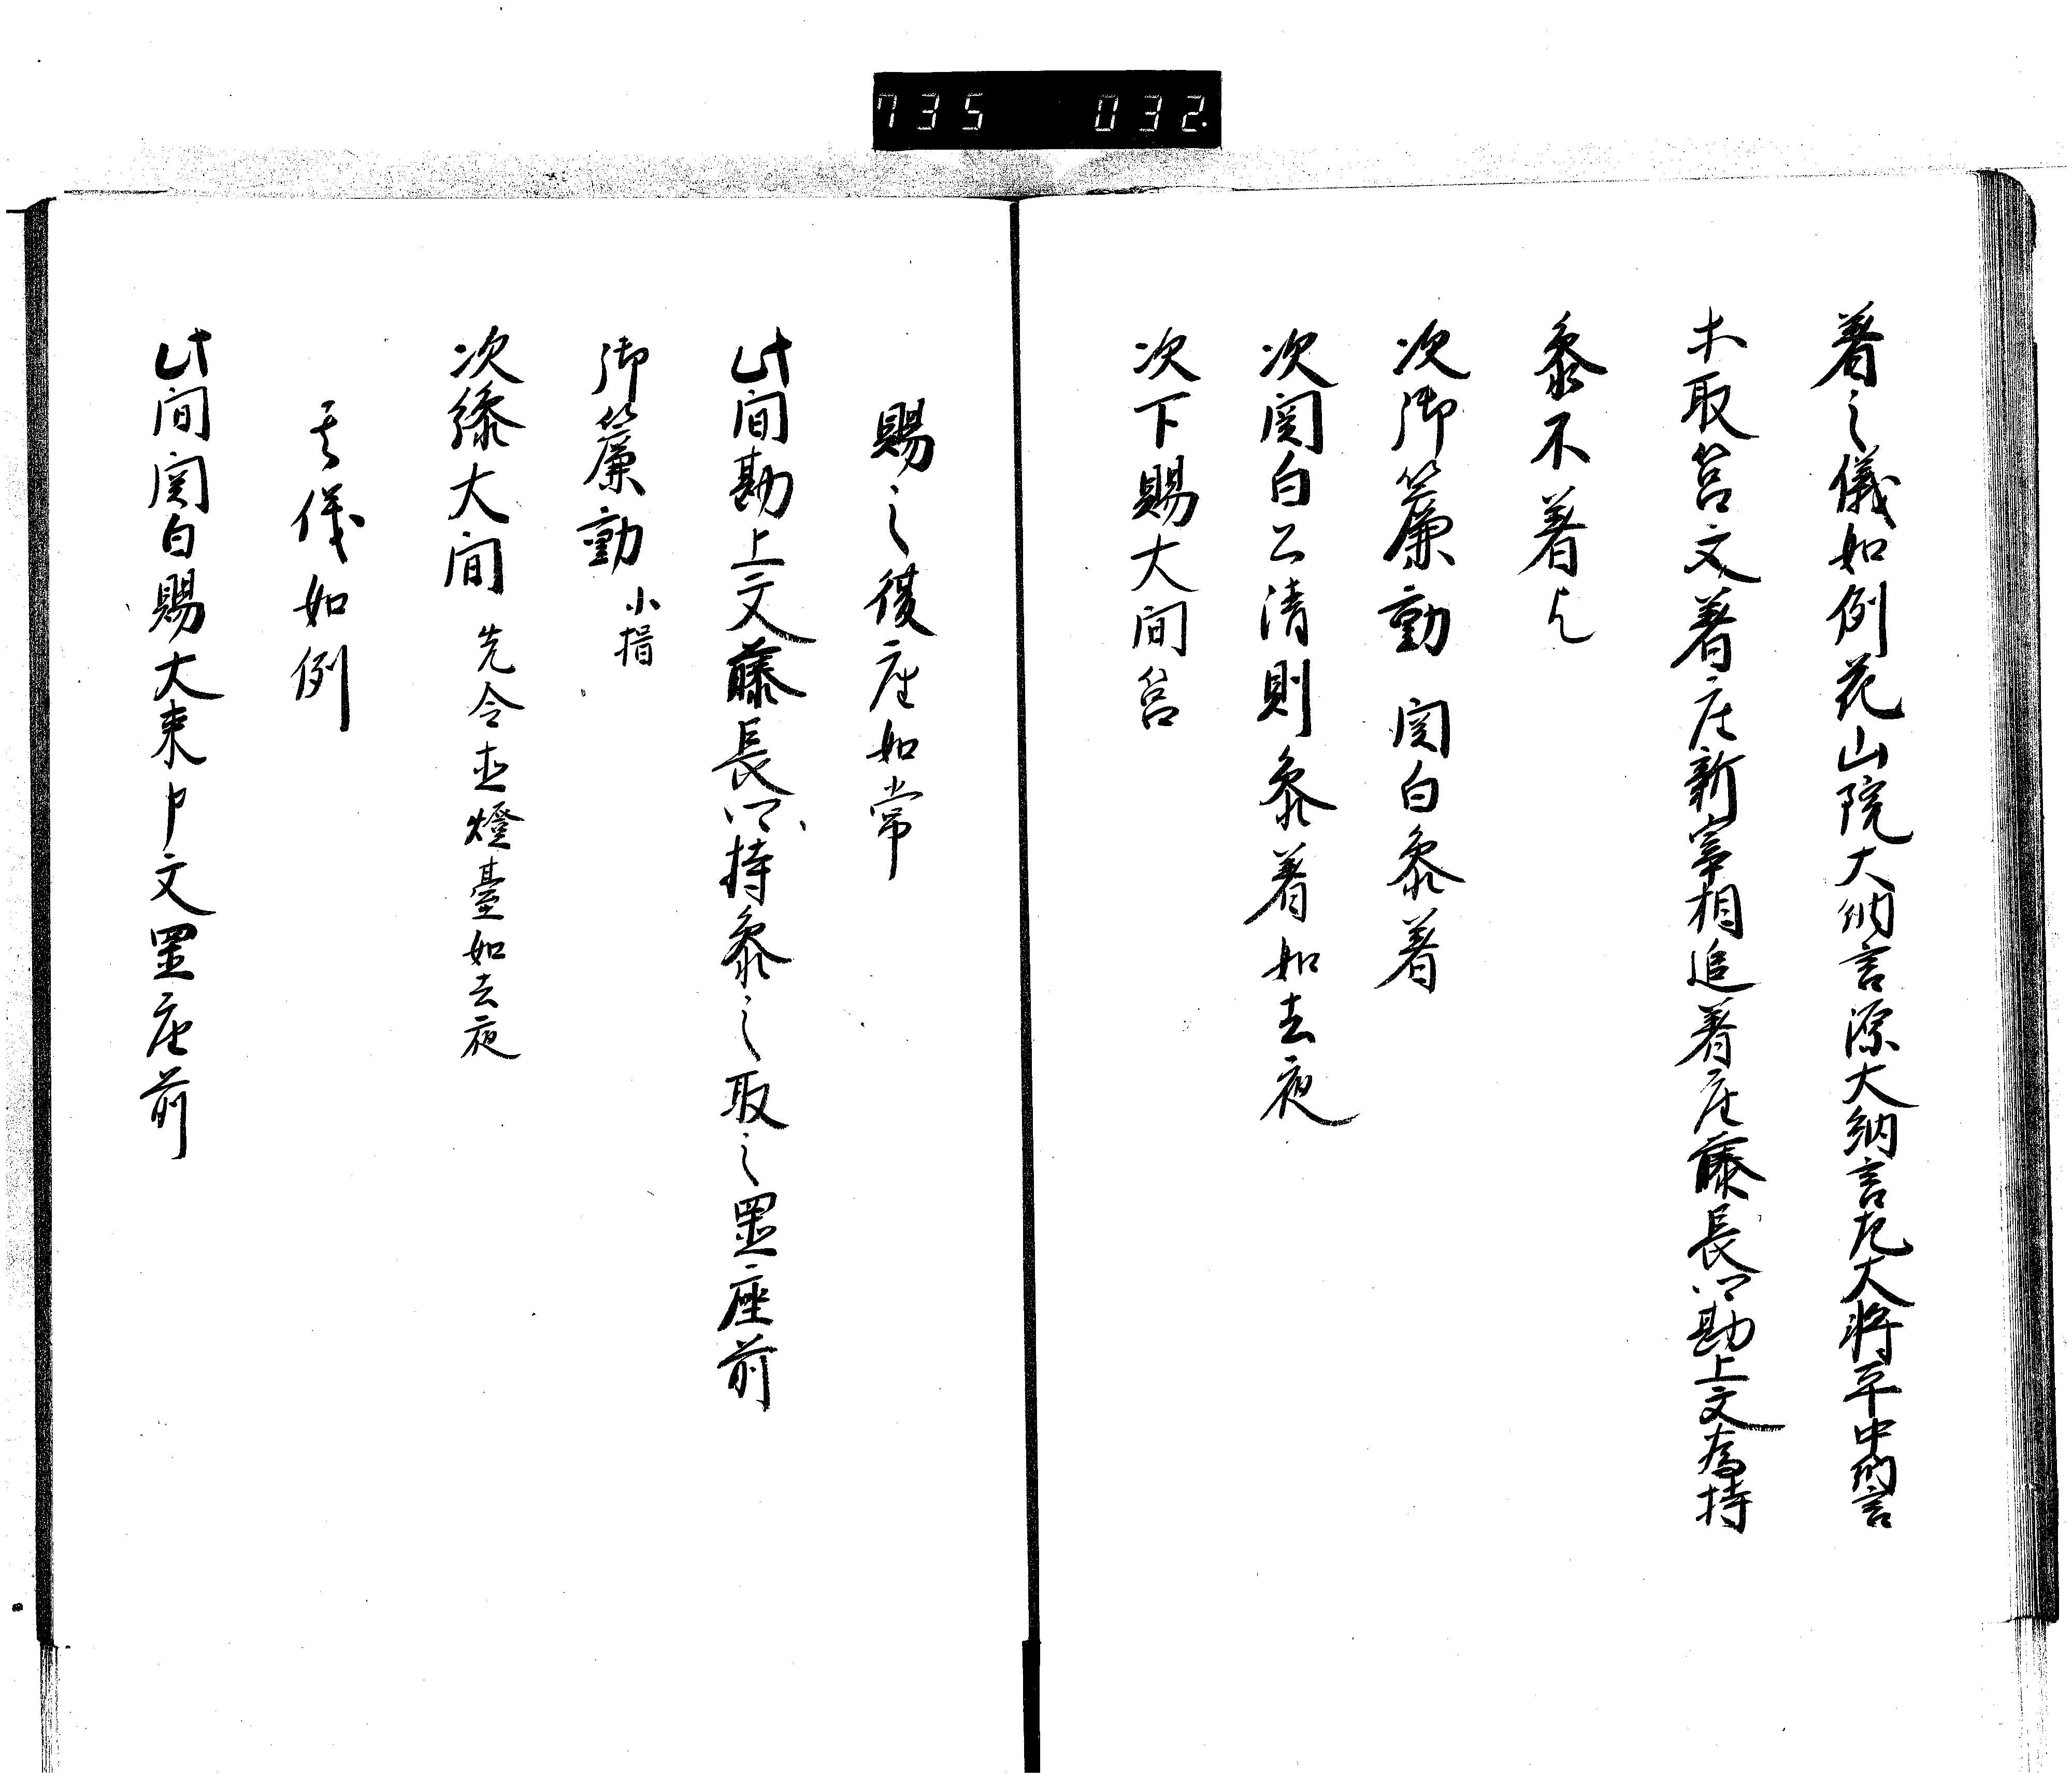 735 032
著之儀如例花山院大納言源大納言左大将平中納言
木取筥文著座新宰相追著座藤長以勘上文為持
参不著
次御簾動 関白参著
次関白公清則参著如去夜
次下賜大間筥
賜之復座如常
此間勘上文藤長以持参之取之置座前
御簾動 小揖
次繰大間 先令立燈臺如去夜
其儀如例
此間関白賜大束申文置座前